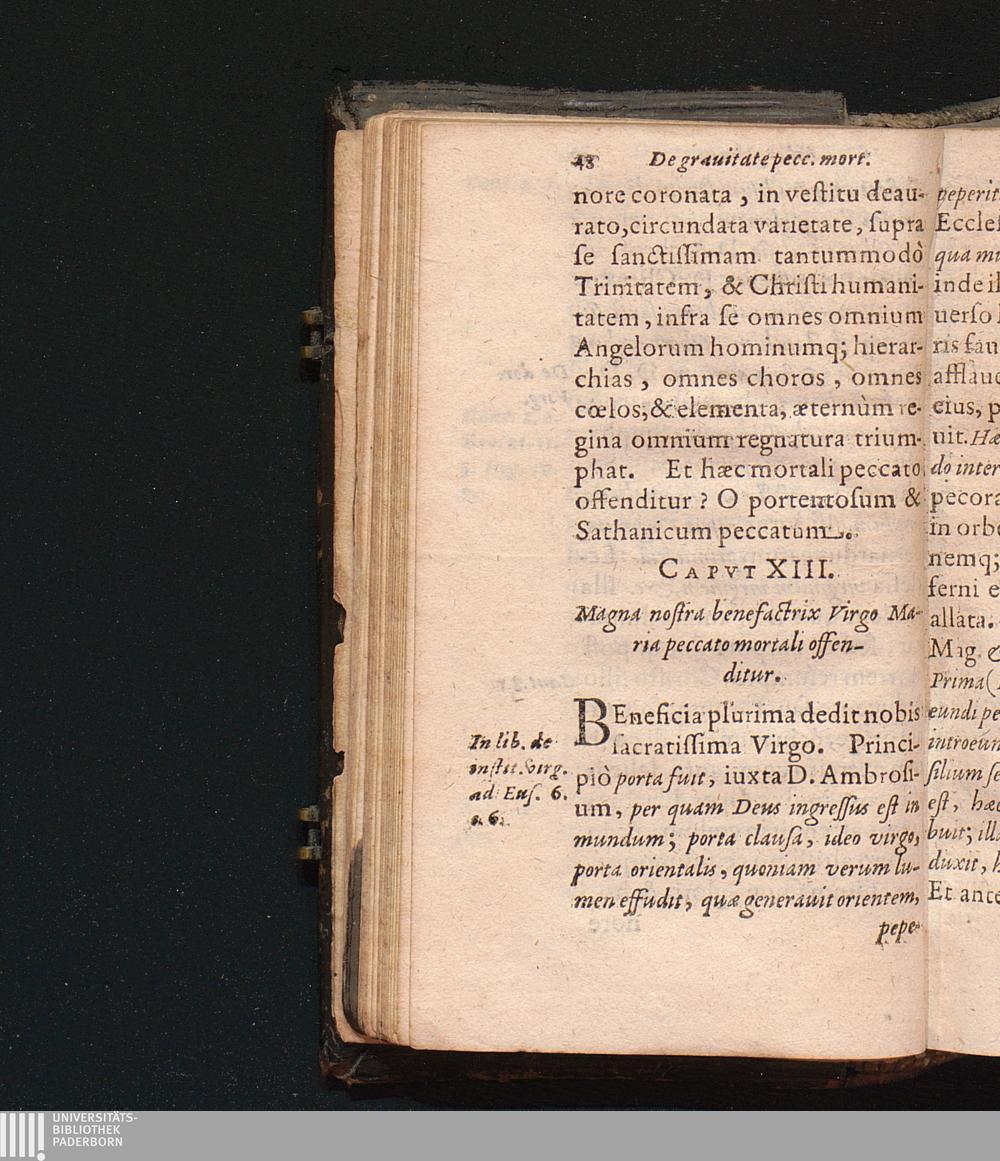 48 De grauitate pecc. mort.
nore coronata , in veſtitu deau-
rato,circundata varietate, ſupra
ſe ſanctiſſimam tantummodò
Trinitatem, & Chriſti humani-
tatem, infra ſe omnes omnium
Angelorum hominumq; hierar-
chias , omnes choros , omnes
cœlos,& elementa, æternùm re-
gina omnium regnatura trium-
phat. Et hæc mortali peccato
offenditur ? O portentoſum &
Sathanicum peccatum.
CAPVT XIII.
Magna noſtra benefactrix Virgo Ma-
ria peccato mortali offen-
ditur.
BEneficia plurima dedit nobis
ſacratiſſima Virgo. Princi-
piò porta fuit, iuxta D. Ambroſi-
um, per quam Deus ingreſſus eſt in
mundum; porta clauſa, ideo virgo,
porta orientalis, quoniam verum lu-
men effudit, quæ generauit orientem,
pepe-
In lib. de
inſtit. virg.
ad Euſ. 6.
peperit
Eccleſ
qua mu
inde il
uerſo
ris fau
afflaue
eius, p
uit. Hæ
do inter
pecora
in orbe
nemq;
ferni e
allata.
Mag. &
Prima (
eundi pe
introeun
filium ſe
eſt, hæc
buit; illa
duxit, h
Et ante
UNIVERSITÄTS-
BIBLIOTHEK
PADERBORN